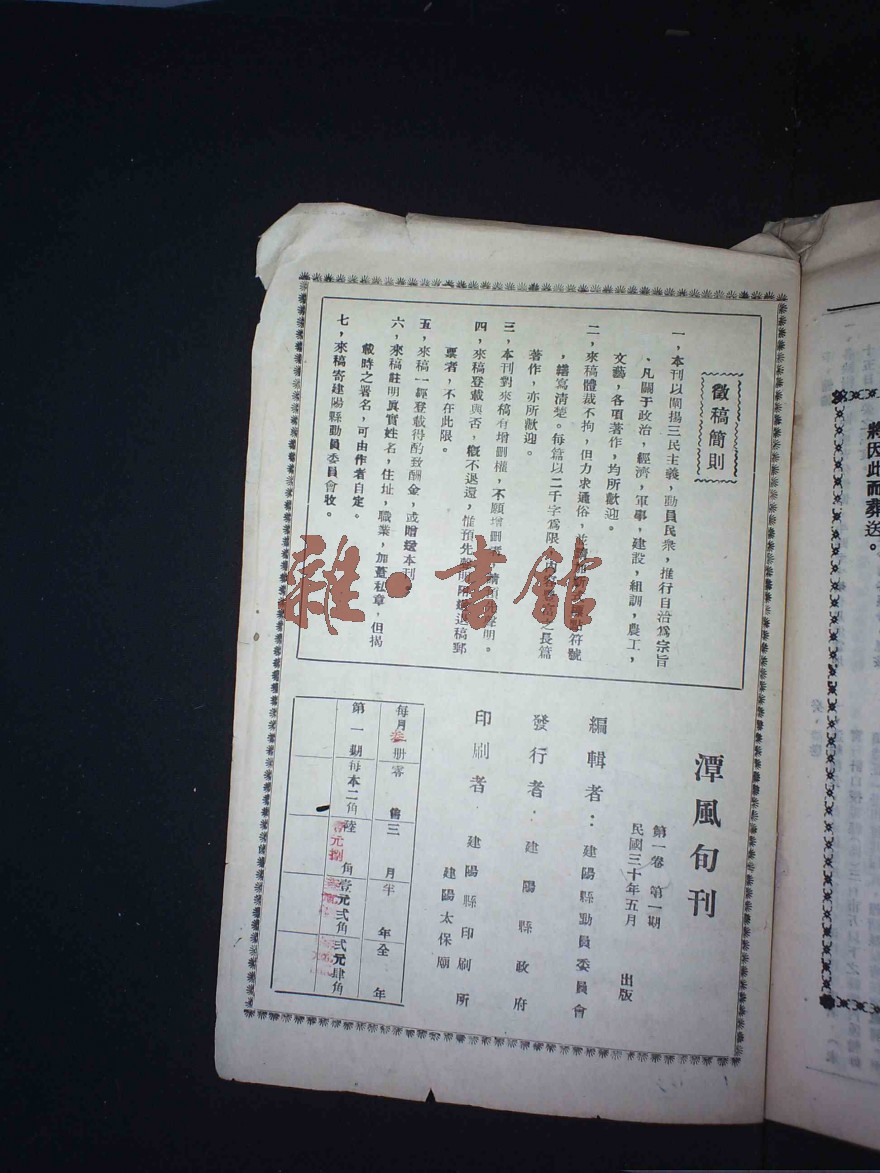 徵稿簡則
一，本刊以闡揚三民主義，動員民衆，推行自治爲宗旨
、凡關于政治，經濟，軍事，建設，組訓，農工，
文藝，各項著作，均所歡迎。
二，來稿體裁不拘，但力求通俗，並符號
，繕寫清楚。每篇以二千字爲限，之長篇
著作，亦所歡迎。
三，本刊對來稿有增刪權，不願增刪者，請預先聲明。
四，來稿登載與否，概不退還，惟預先聲明附退稿郵
票者，不在此限。
五，來稿一經登載得酌致酬金，或贈送本刊。
六，來稿註明眞實姓名，住址，職業，加蓋私章，但揭
載時之署名，可由作者自定。
七，來稿寄建陽縣動員委員會收。
潭風旬刊
第一卷 第一期
民國三十年五月 出版
編輯者：建陽縣動員委員會
發行者：建陽縣政府
印刷者．建陽縣印刷所
建陽太保廟
每月叁册零售 三月 半年 全年
第一期每本二角 陸角 壹元弍角 弍元肆角
雜·書館
將因此而葬送。